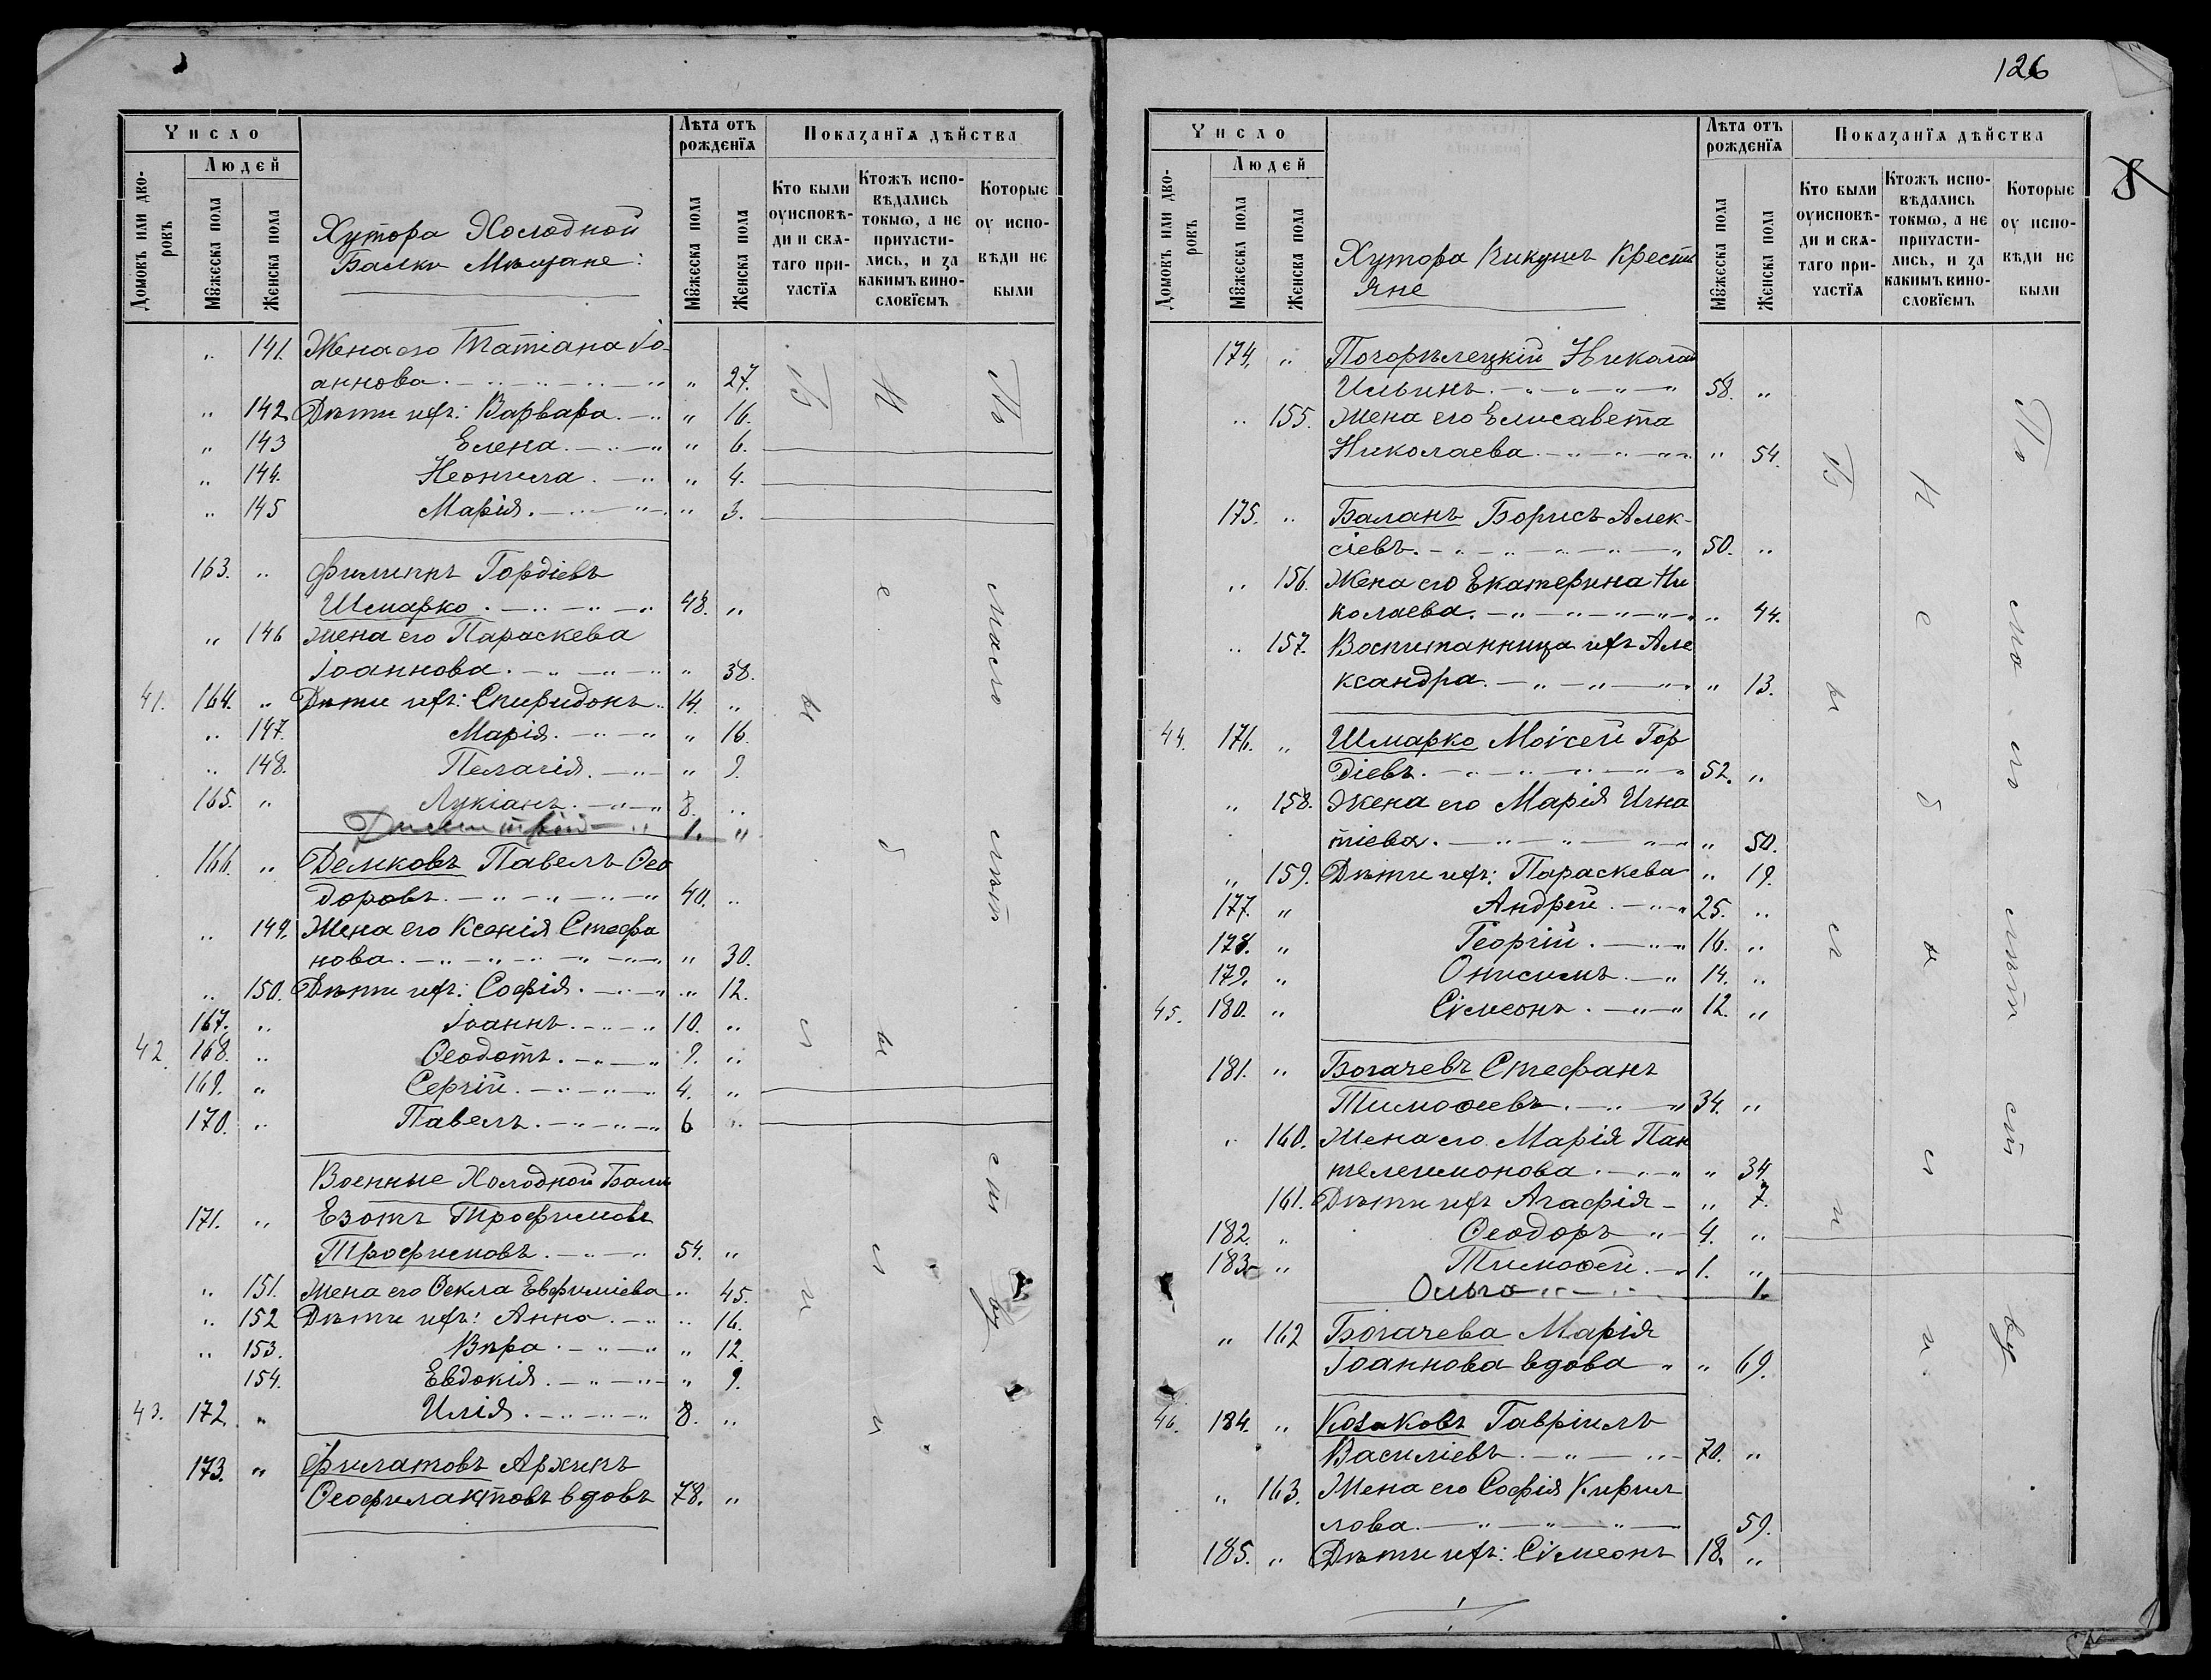 126
Число
Людей
Домовъ или дворовъ
Мꙋжеска пола
Женска пола
Хутора Холодной
Балки Мѣщане:
Лѣта отъ рожденїѧ
Мꙋжеска пола
Женска пола
Показанїѧ дѣйства
Кто были оуисповѣди и свѧтаго причастїѧ
Ктожъ исповѣдались токмѡ, а не причастились, и за какимъ винословїемъ
Которые оу исповѣди не были
„ 141. Жена его Татіана Іо-
аннова. „ 27.
„ 142 Дѣти ихъ: Варвара. „ 16.
„ 143 Елена. „ 6.
„ 144. Неонила. „ 4.
„ 145 Марія. „ 3.
163. „ Филиппъ Гордіевъ
Шмарко. 48. „
„ 146 Жена его Параскева
Іоаннова. „ 38.
41. 164. „ Дѣти ихъ: Спиридонъ. 14. „
„ 147. Марія. „ 16.
„ 148. Пелагія. „ 9.
165. „ Лукіанъ. 8. „
Димитрій 1. „
166. „ Демковъ Павелъ Ѳео
доровъ. 40. „
„ 149. Жена его Ксенія Стефа
нова. „ 30.
„ 150. Дѣти ихъ: Софія. „ 12.
167. „ Іоаннъ. 10. „
42. 168. „ Ѳеодотъ. 9. „
169. „ Сергій. 4. „
170. „ Павелъ. 6 „
Военные Холодной Балки
171. „ Езотъ Трофимовъ
Трофимовъ. 54. „
„ 151. Жена его Ѳекла Евфиміева „ 45.
„ 152 Дѣти ихъ: Анна. „ 16.
„ 153. Вѣра. „ 12.
154. Евдокія. „ 9.
43. 172. „ Илія. 8. „
173. „ Филатовъ Архипъ
Ѳеофилактовъ вдовъ 78. „
Были
Не были
По малолѣтству
Число
Людей
Домовъ или дворовъ
Мꙋжеска пола
Женска пола
Хутора Кикунъ Крестья
яне
Лѣта отъ рожденїѧ
Мꙋжеска пола
Женска пола
Показанїѧ дѣйства
Кто были оуисповѣди и свѧтаго причастїѧ
Ктожъ исповѣдались токмѡ, а не причастились, и за какимъ винословїемъ
Которые оу исповѣди не были
174. „ Погорѣлецкій Николай
Ильинъ. 58. „
„ 155. Жена его Елисавета
Николаева. „ 54.
175. „ Баланъ Борисъ Алек-
сіевъ. 50. „
„ 156. Жена его Екатерина Ни
колаева. „ 44.
„ 157. Воспитанница ихъ Але
ксандра. „ 13.
44. 176. „ Шмарко Моѵсей Гор
діевъ. 52. „
„ 158. Жена его Марія Игна
тіева. „ 50.
„ 159. Дѣти ихъ: Параскева „ 19.
177. „ Андрей. 25. „
178. „ Георгій. 16. „
179. „ Онисимъ. 14. „
45. 180. „ Сѵмеонъ. 12. „
181. „ Богачевъ Стефанъ
Тимоѳеевъ. 34. „
„ 160. Жена его Марія Пан
телеимонова. „ 34
161. Дѣти ихъ Агафія „ 7.
182. „ Ѳеодоръ 4. „
183 „ Тимоѳей. 1. „
Ольга 1.
„ 162 Богачева Марія
Іоаннова вдова „ 69.
46. 184. „ Козаковъ Гавріилъ
Василіевъ. 70. „
„ 163. Жена его Софія Кирил
лова. 59.
185. „ Дѣти ихъ: Сѵмеонъ 18. „
Были
Не были
По малолѣтству